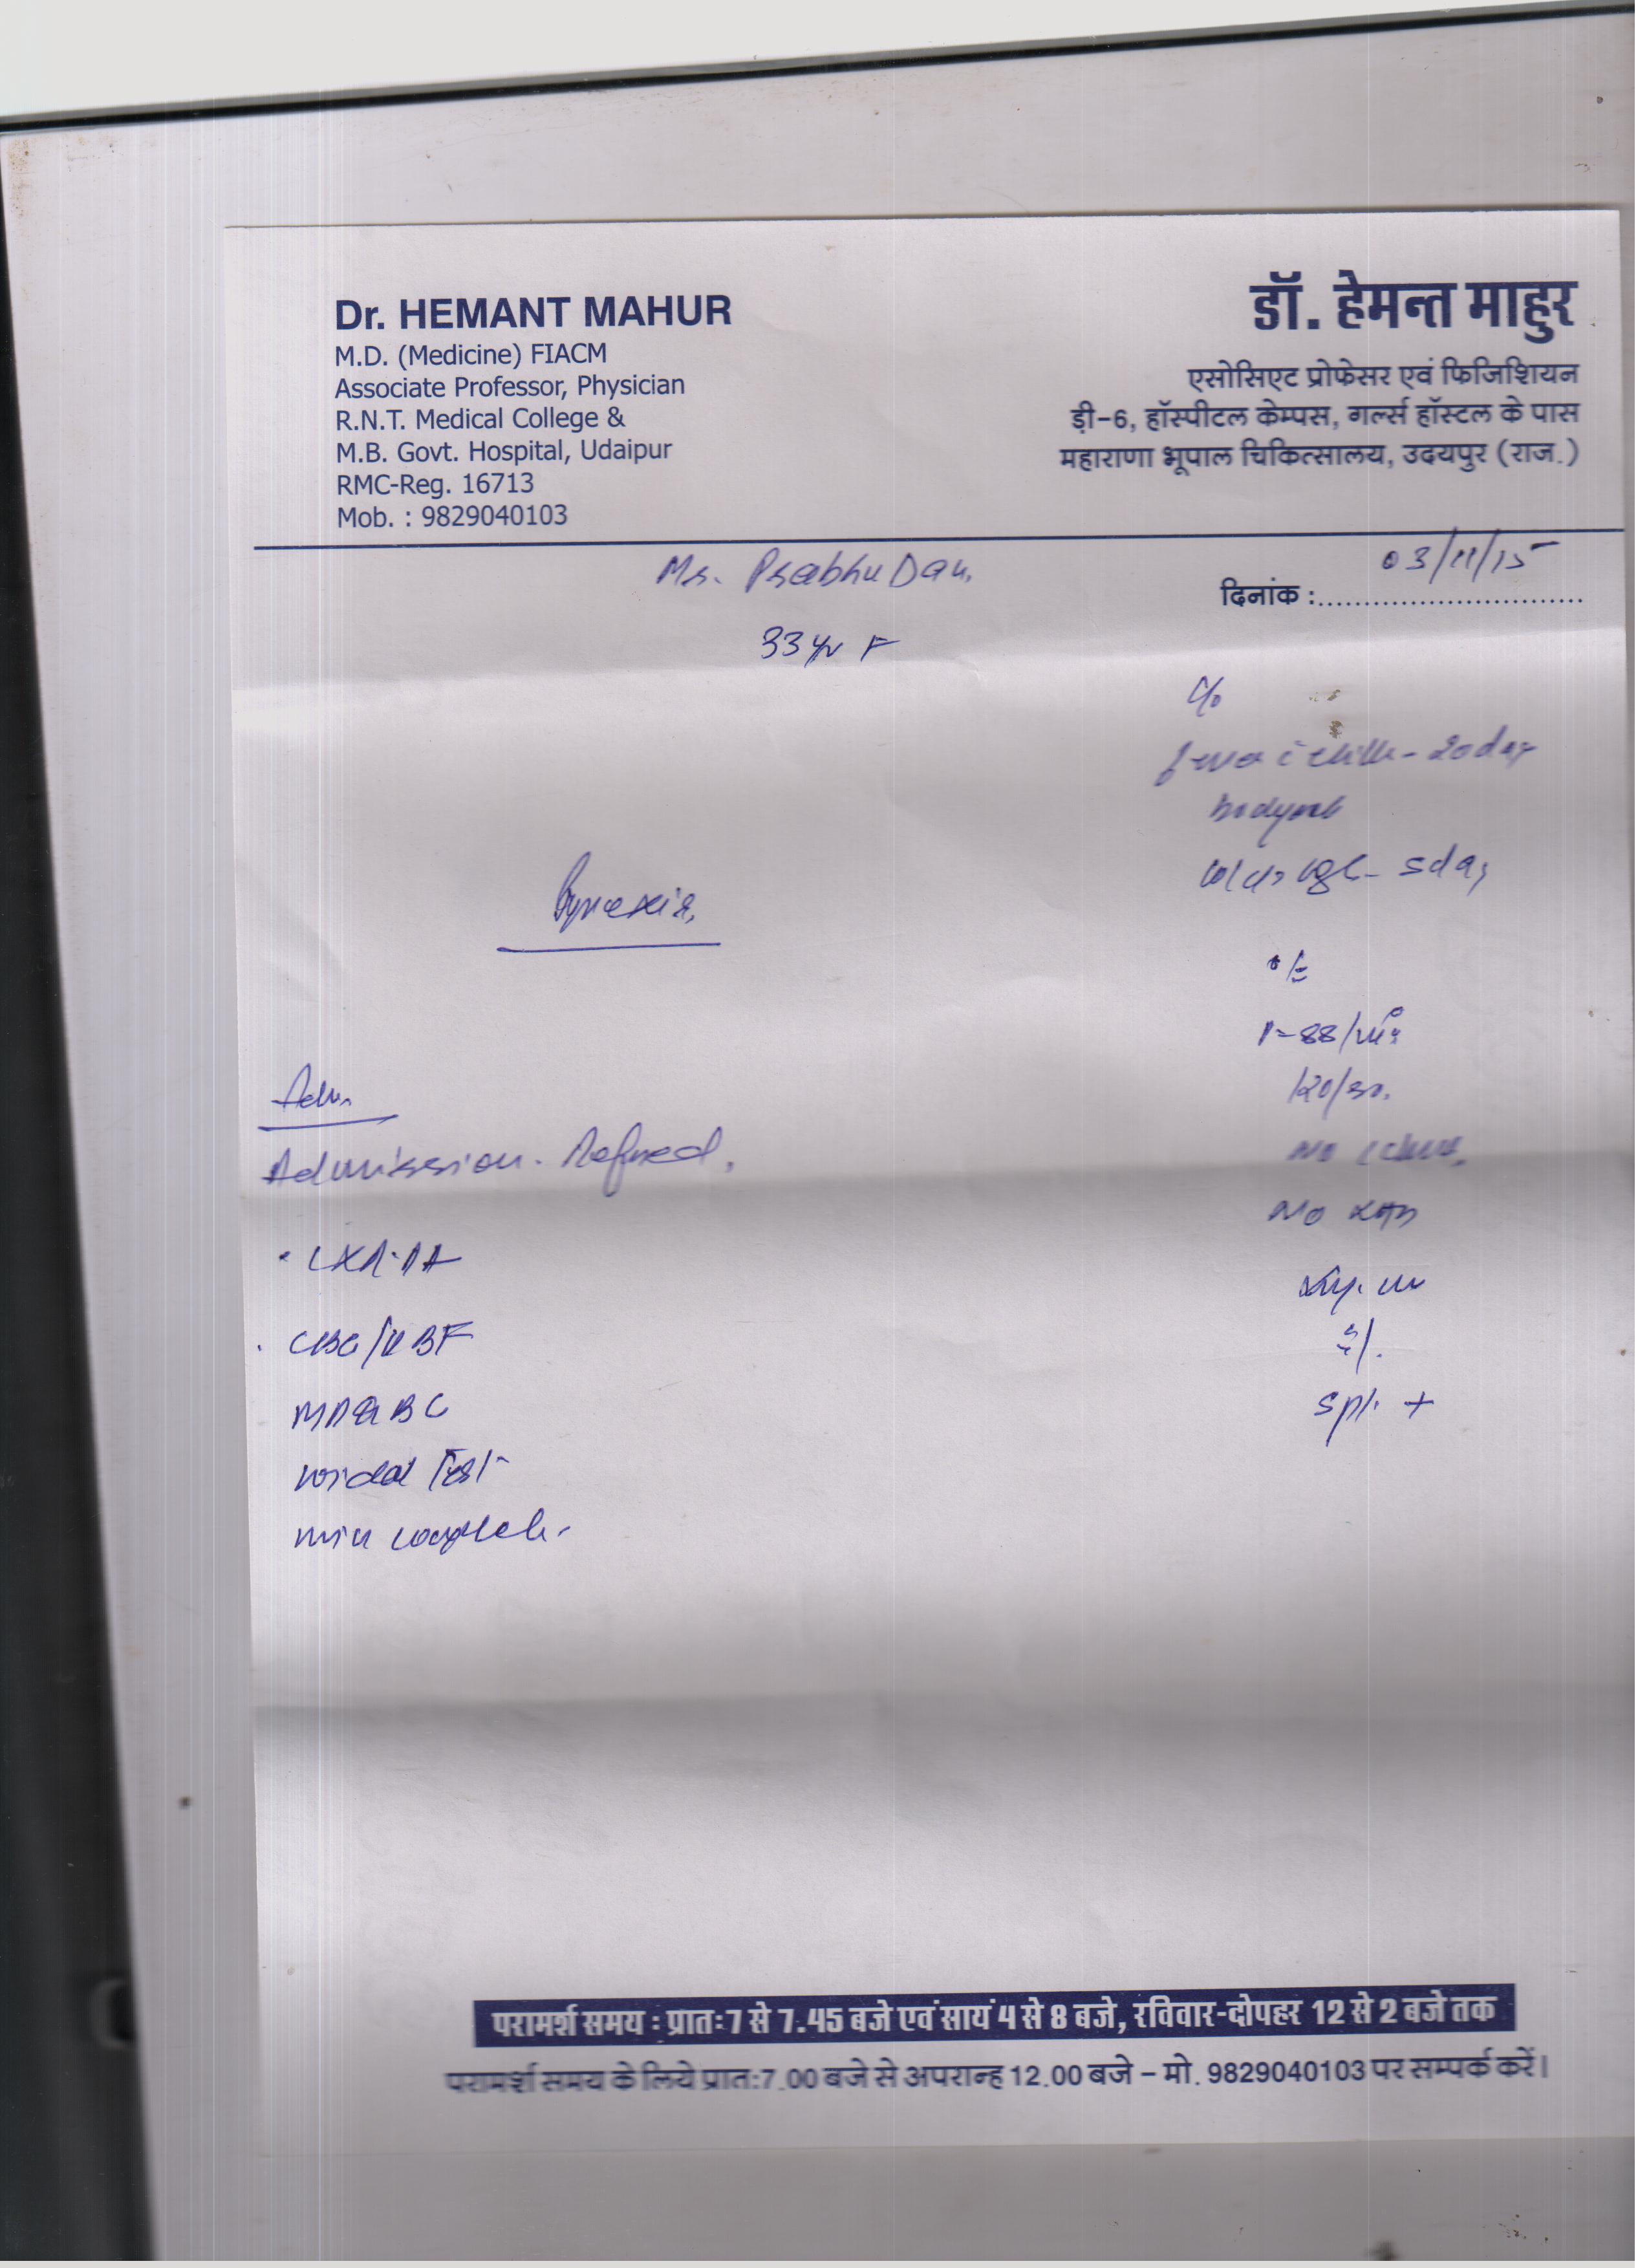 Dr. HEMANT MAHUR
M.D. (Medicine) FIACM
Associate Professor, Physician
R.N.T. Medical College &
M.B. Govt. Hospital, Udaipur
RMC-Reg. 16713
Mob. : 9829040103
डॉ. हेमन्त माहुर
एसोसिएट प्रोफेसर एवं फिजिशियन
ड़ी-6, हॉस्पीटल केम्पस, गर्ल्स हॉस्टल के पास
महाराणा भूपाल चिकित्सालय, उदयपुर (राज.)
03/11/15
दिनांक :
Prabhu
33 yr F
c/o
20 day
5 day
Pyrexia
O/E
P-88/min
No
No
Spl. +
Adv.
Admission. Refused.
CXR-PA
CBC/PBF
Widal Test
परामर्श समय : प्रातः 7 से 7.45 बजे एवं सायं 4 से 8 बजे, रविवार-दोपहर 12 से 2 बजे तक
परामर्श समय के लिये प्रातः 7.00 बजे से अपरान्ह 12.00 बजे – मो. 9829040103 पर सम्पर्क करें।